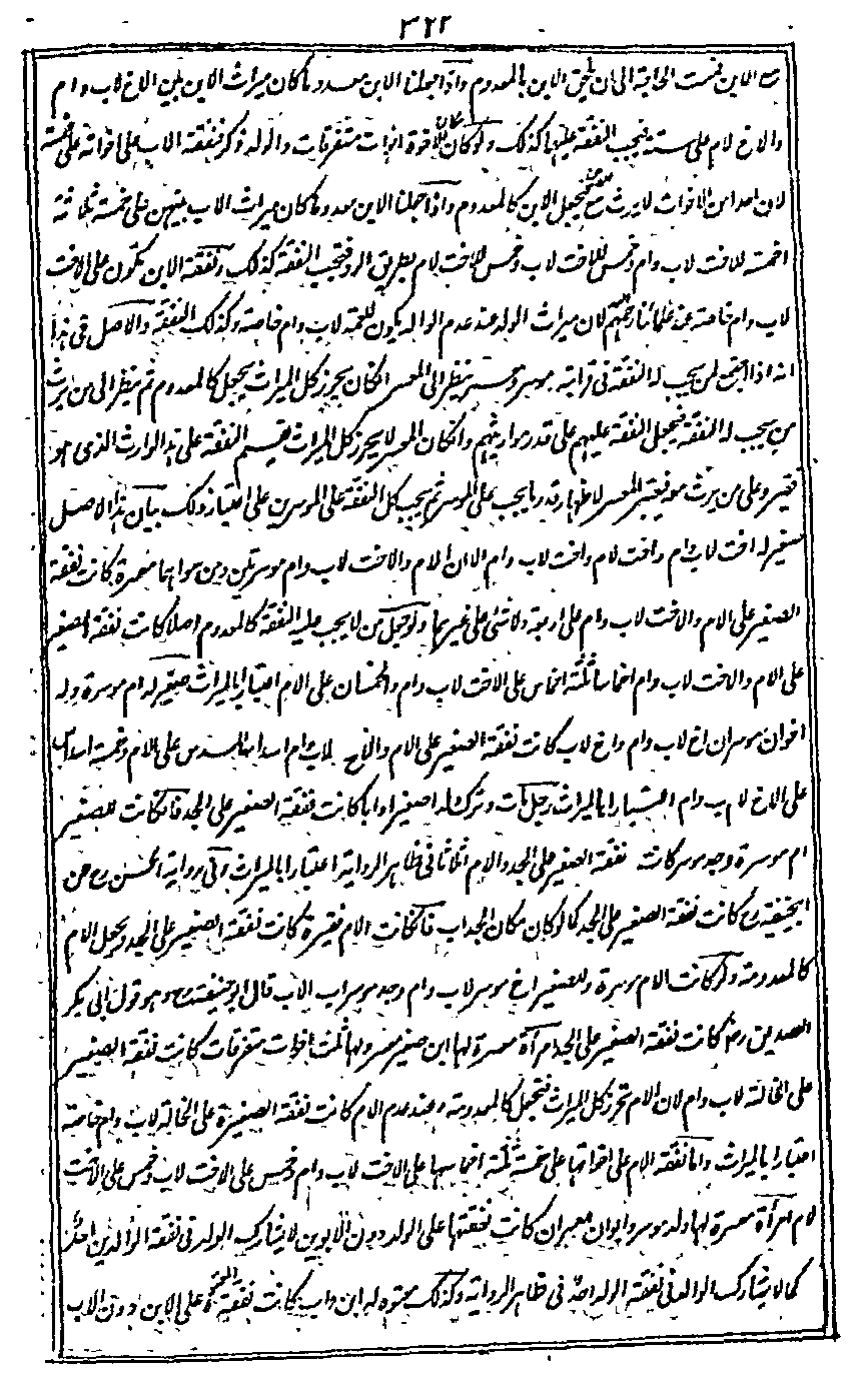 ٣٢٢
مع الابن فمست الحاجة الى ان يلحق الابن بالمعدوم واذا جعلنا الابن معدوما كان ميراث الابن بين الاخ لاب وام
والاخ لام على ستة فيجب النفقة عليهما كذلك ولو كان للاخوة اخوات متفرقات والولد ذكر فنفقة الاب على اخواته على خمسة
لان احدا من الاخوات لا يرث مع الابن فيجعل الابن كالمعدوم واذا جعلنا الابن معدوما كان ميراث الاب بينهن على خمسة ثلاثة
اخمسه للاخت لاب وام وخمس للاخت لاب وخمس للاخت لام بطريق الرد فتجب النفقة كذلك ونفقة الابن تكون على الاخت
لاب وام خاصة عند علمائنا رحمهم لان ميراث الولد عند عدم الوالد يكون للعمة لاب وام خاصة وكذلك النفقة والاصل فى هذا
انه اذا اجتمع لمن يجب له النفقة فى قرابته موسر ومعسر ينظر الى المعسر ان كان يحرز كل الميراث يجعل كالمعدوم ثم ينظر الى من يرث
من يجب له النفقة فيجعل النفقة عليهم على قدر مواريثهم وان كان المعسر لا يحرز كل الميراث تقسم النفقة على هذا الوارث الذى هو
فقير وعلى من يرث معه فيعتبر المعسر لاظهار قدر ما يجب على الموسر ثم يجب كل النفقة على الموسرين على اعتبار ذلك بيان هذا الاصل
صغير له اخت لاب وام واخت لام واخت لاب وام الا ان الام والاخت لاب وام موسرتين ومن سواهما معسرة كانت نفقة
الصغير على الام والاخت لاب وام على اربعة ولا شئ على غيرهما ولو جعل من لا يجب عليه النفقة كالمعدوم اصلا كانت نفقة الصغير
على الام والاخت لاب وام اخماسا ثلثة اخماس على الاخت لاب وام والخمسان على الام اعتبارا بالميراث صغير له ام موسرة وله
اخوان موسران اخ لاب وام واخ لاب كانت نفقة الصغير على الام والاخ لاب وام اسداسا السدس على الام وخمسة اسداس
على الاخ لاب وام اعتبارا بالميراث رجل مات وترك له صغيرا وابا كانت نفقة الصغير على الجد فان كانت للصغير
ام موسرة وجد موسر كانت نفقة الصغير على الجد والام اثلاثا فى ظاهر الرواية اعتبارا بالميراث وفى رواية الحسن رح عن
ابيحنيفة رح كانت نفقة الصغير على الجد كما لو كان مكان الجد اب فان كانت الام فقيرة كانت نفقة الصغير على الجد ويجعل الام
كالمعدومة ولو كانت الام موسرة وللصغير اخ موسر لاب وام وجد موسر اب الاب قال ابوحنيفة رح وهو قول ابى بكر
الصديق رض كانت نفقة الصغير على الجد امرأة معسرة لها ابن صغير معسر ولها ثلث اخوات متفرقات كانت نفقة الصغير
على الخالة لاب وام لان الام تحرز كل الميراث فتجعل كالمعدومة وعند عدم الام كانت نفقة الصغيرة على الخالة لاب وام خاصة
اعتبارا بالميراث واما نفقة الام على اخواتها على خمسة ثلثة اخماسها على الاخت لاب وام وخمس على الاخت لاب وخمس على الاخت
لام امرأة معسرة لها ولد موسر وابوان معسران كانت نفقتها على الولد دون الابوين لا يشارك الولد فى نفقة الوالدين احد
كما لا يشارك الوالد فى نفقة الولد احد فى ظاهر الرواية وكذلك معتوه له ابن واب كانت نفقة المعتوه على الابن دون الاب